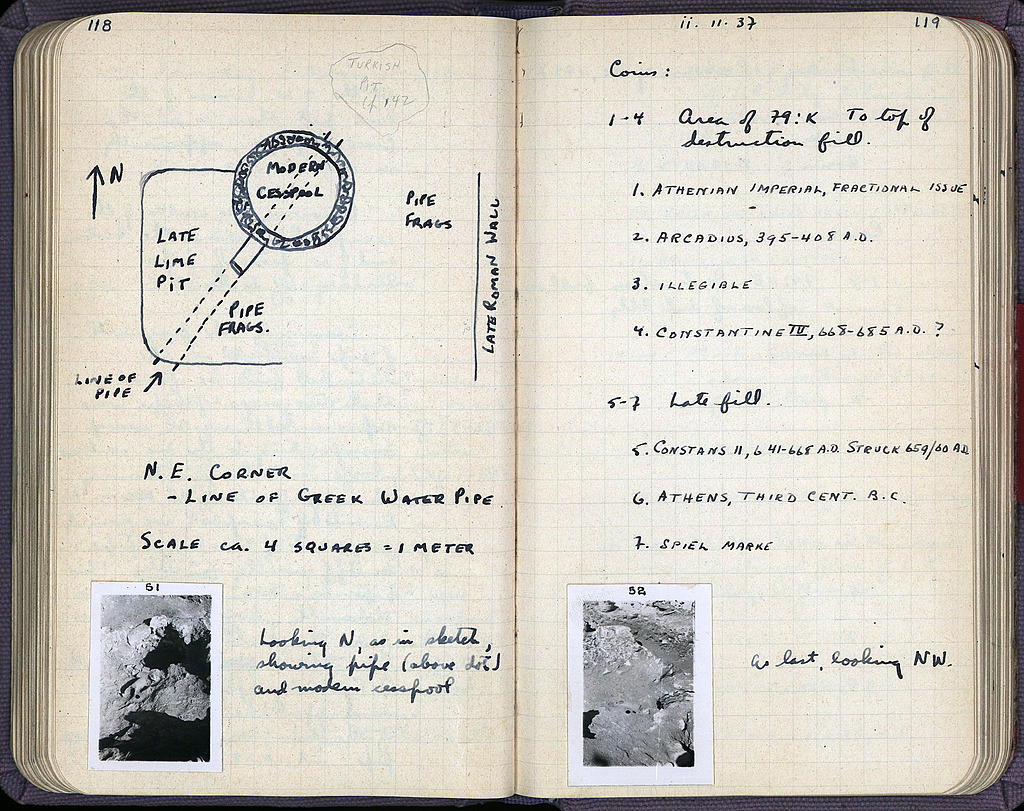 118
TURKISH
PIT
N
MODERN
CESSPOOL
LATE
LIME
PIT
PIPE
FRAGS
LATE ROMAN WALL
PIPE
FRAGS.
LINE OF
PIPE
N.E. CORNER
- LINE OF GREEK WATER PIPE
SCALE ca. 4 SQUARES = 1 METER
51
Looking N, as in sketch,
showing pipe (above dot)
and modern cesspool
ii. 11. 37
119
Coins:
1-4 Area of 79:K To top of
destruction fill.
1. ATHENIAN IMPERIAL, FRACTIONAL ISSUE
2. ARCADIUS, 395-408 A.D.
3. ILLEGIBLE
4. CONSTANTINE IV, 668-685 A.D. ?
5-7 Late fill.
5. CONSTANS II, 641-668 A.D. STRUCK 659/60 AD
6. ATHENS, THIRD CENT. B.C.
7. SPIEL MARKE
52
as last, looking NW.